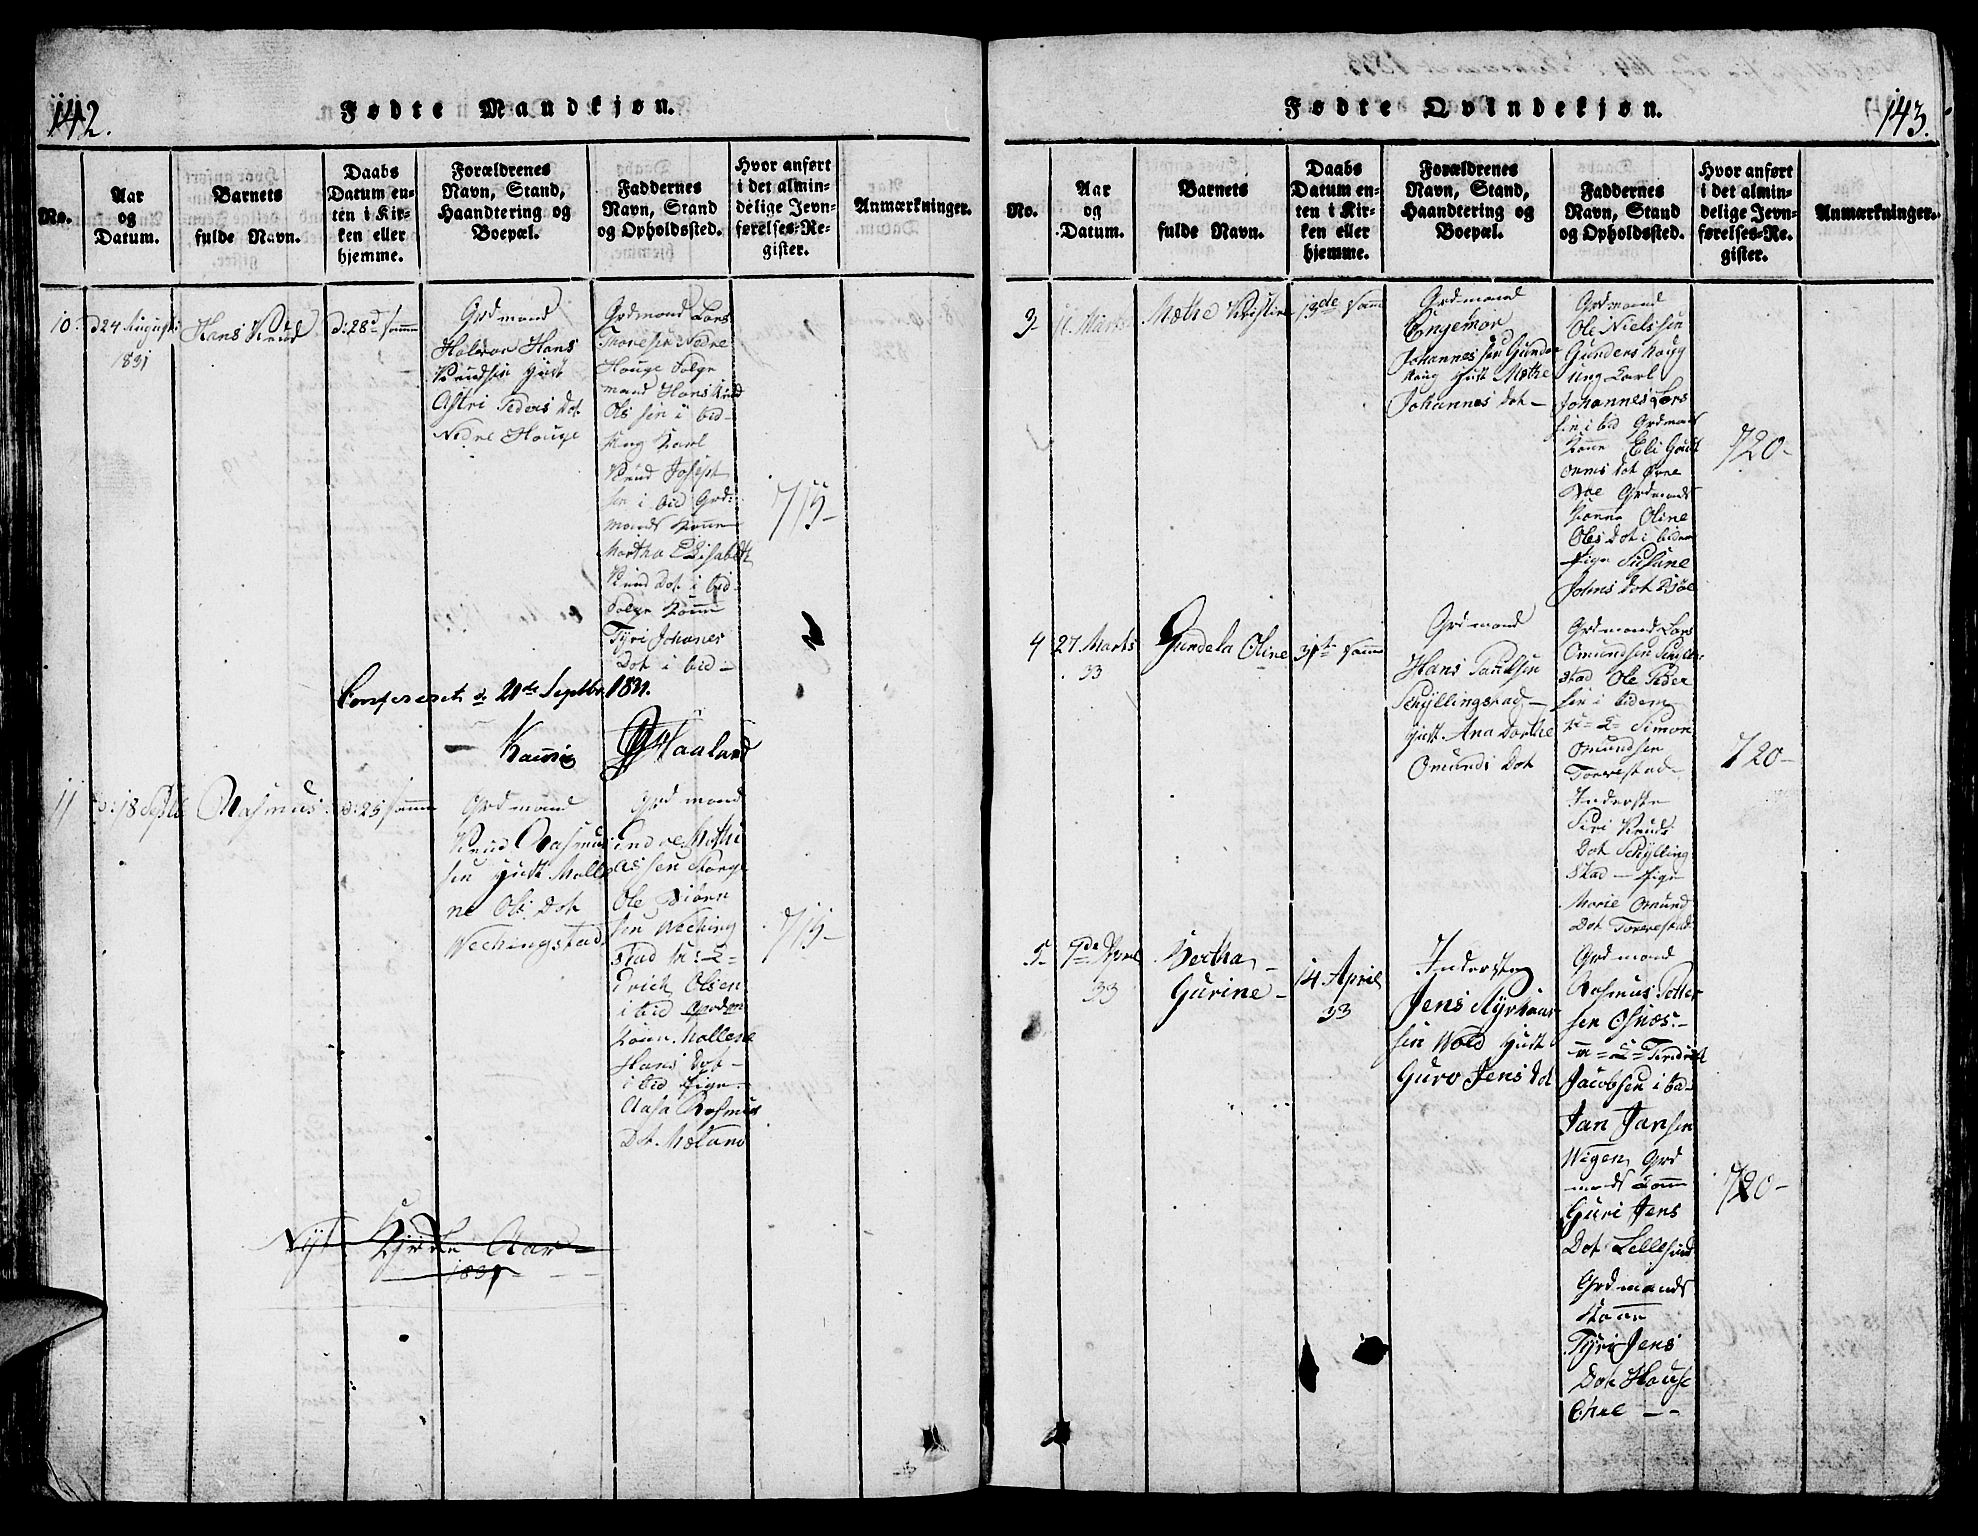 142.
Fødte Mandkjøn.
No.
Aar
og
Datum.
Barnets
fulde Navn.
Daabs
Datum en-
ten i Kir-
ken eller
hjemme.
Forældrenes
Navn, Stand,
Haandtering og
Boepæl.
Faddernes
Navn, Stand
og Opholdssted.
Hvor anført
i det almin-
delige Jevn-
førelses-Re-
gister.
Anmærkninger.
10.
d 24 August
1831
Hans Knud
d: 28d Samme
Grdmand
Halvor Hans
Knudsen Hust
Astri Peders Dot
Nedre Houge
Grdmand Lars
Thoresen Nedre
Houge
mand Hans Knud
Ols sen i bid-
Ung Karl
Knud Joseph
sen i bid Grd:
mands Konne
Martha Elisabeth
Knud Dot i bid-
Konne
Tyri Johanes
Dot i bid-
715-
Confereret d. 21de Septbr. 1831.
Haaland
11
d: 18 Septb
Rasmus
d: 25 Samme
Grdmand
Knud Rasmus
sen Hust Malle
ne Ols Dot
Wechingstad
Grdmand
Endre Mathi
assen Stange
Ole Biørn
sen Weching
stad
drich Olsen
i bid Grdm
Konne Mallene
Hans Dot-
i bid Pige-
Aasa Rasmus
Dot Mæland
715-
Nyt Kyrke Aar
1831
143.
Fødte Qvindekjøn.
No.
Aar
og
Datum.
Barnets
fulde Navn.
Daabs
Datum en-
ten i Kir-
ken eller
hjemme.
Forældrenes
Navn, Stand,
Haandtering og
Boepæl.
Faddernes
Navn, Stand
og Opholdssted.
Hvor anført
i det almin-
delige Jevn-
førelses-Re-
gister.
Anmærkninger.
3-
11 Marts
Mæthe Kristine
13de Samme
Grdmand
Ingemor
Johannessen Gunder
Houg Hust Mæthe
Johannes Dot-
Grdmand
Ole Nielssen
Gunders Houg
Ung Karl
Johannes Lars
sen i bid Grdmands
Konne Eli Gudt
orms Dot Øvre
Grdmands
Konne Oline
Ols Dot i biden
Pige Susane
Johns Dot
720-
4
27 Marts
33
Gundela Oline
31te Samme
Grdmand
Hans Paulsen
Schyllingstad-
Hust Ana Dorthe
Omunds Dot
Grdmand Lars
Omundsen Schylling
stad Ole Peder
sen i biden
Simon
Omundsen
Torrestad-
Inderste
Siri Knuds
Dot Schylling
stad - Pige
Marie Omund
Dot Torrestad
720-
5-
9de April
33
Bertha
Gurine-
14 April
33
Inderste
Jens Ayrhaar
sen Wold Hust
Guro Jens Dot
Grdmand
Rasmus Petter
sen Osnæs-
Jacobsen i bid-
Jan Jansen
Wigen, Grd
mands Konne
Guri Jens
Dot Lillesund
Grdmands
Konne
Tyri Jens
Dot Houske
720-